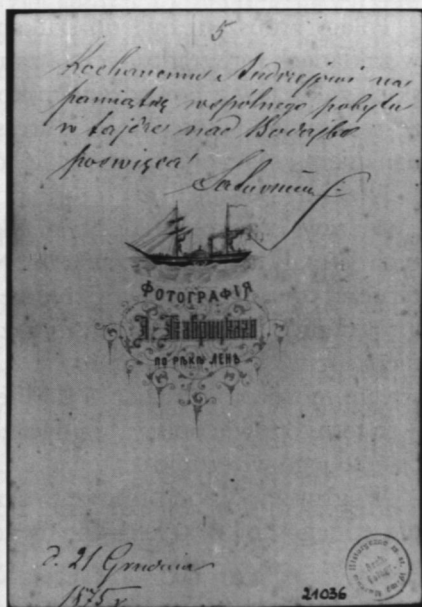 5
Kochanemu Andrzejowi na
pamiątkę wspólnego pobytu
w tajdze nad Bodajbo
poswięca
ФОТОГРАФІЯ
ПО РѢКѢ ЛЕНѢ
d. 21 Grudnia
1875 r
21036